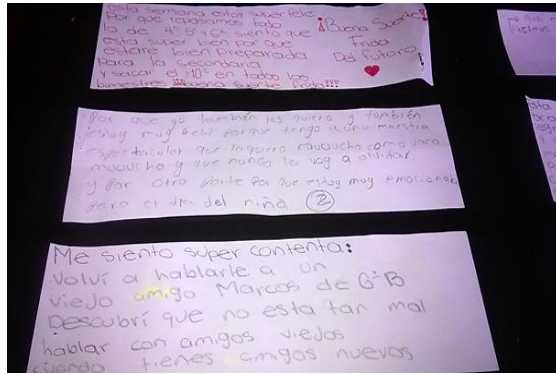 esta semana estoy super feliz
Por que repasamos todo
lo de 4° 5° y 6° siento que
esta super bien por que
estare bien preparada
para la secundaria
y sacar el 10 en todos los
bimestres buena suerte Frida!!!
¡Buena Suerte!
Frida
Del futuro
Por que yo tambien los quiero y también
estoy muy feliz porque tengo a una maestra
espectacular que la quiero muuuucho como vaca
muuucho y que nunca la voy a olvidar
y por otra parte por que estoy muy emocionada
para el dia del niño 2
Me siento super contenta:
Volví a hablarle a un
viejo amigo Marcos de 6°B
Descubrí que no esta tan mal
hablar con amigos viejos
cuando tienes amigos nuevos